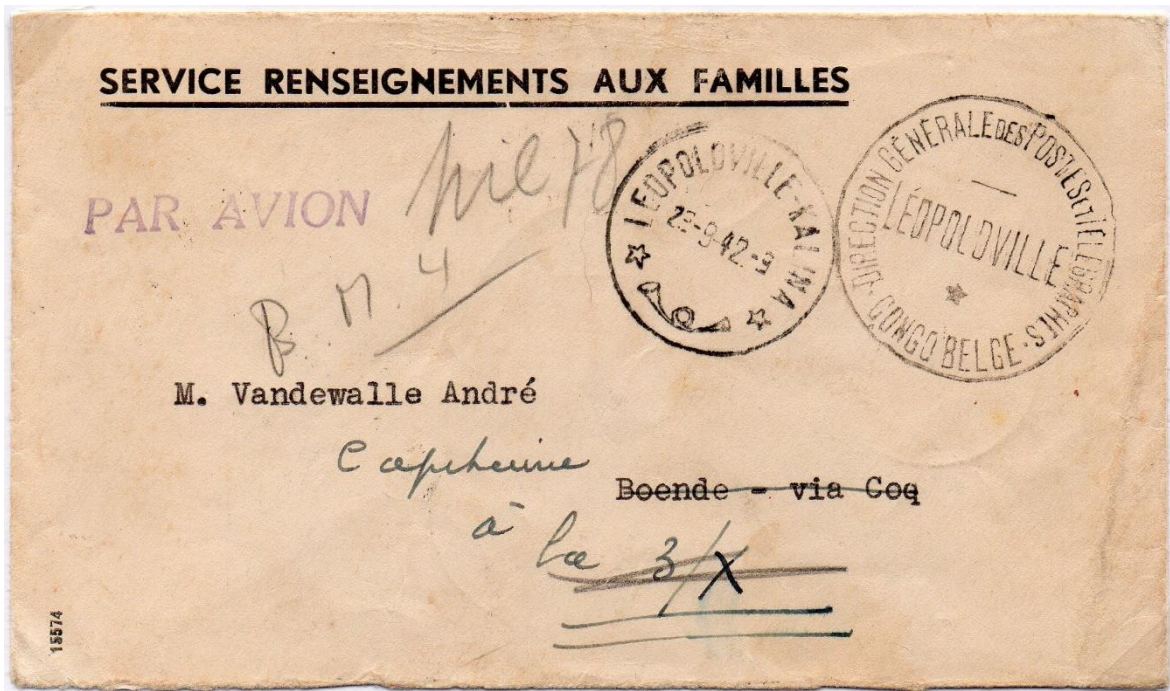 SERVICE RENSEIGNEMENTS AUX FAMILLES
PAR AVION
LEOPOLDVILLE-KALINA
-9-42-9
DIRECTION GÉNÉRALE DES POSTES ET TÉLÉGRAPHES
LÉOPOLDVILLE
CONGO BELGE
B. M. 4
M. Vandewalle André
Boende - via Coq
à
la 3/X
15574